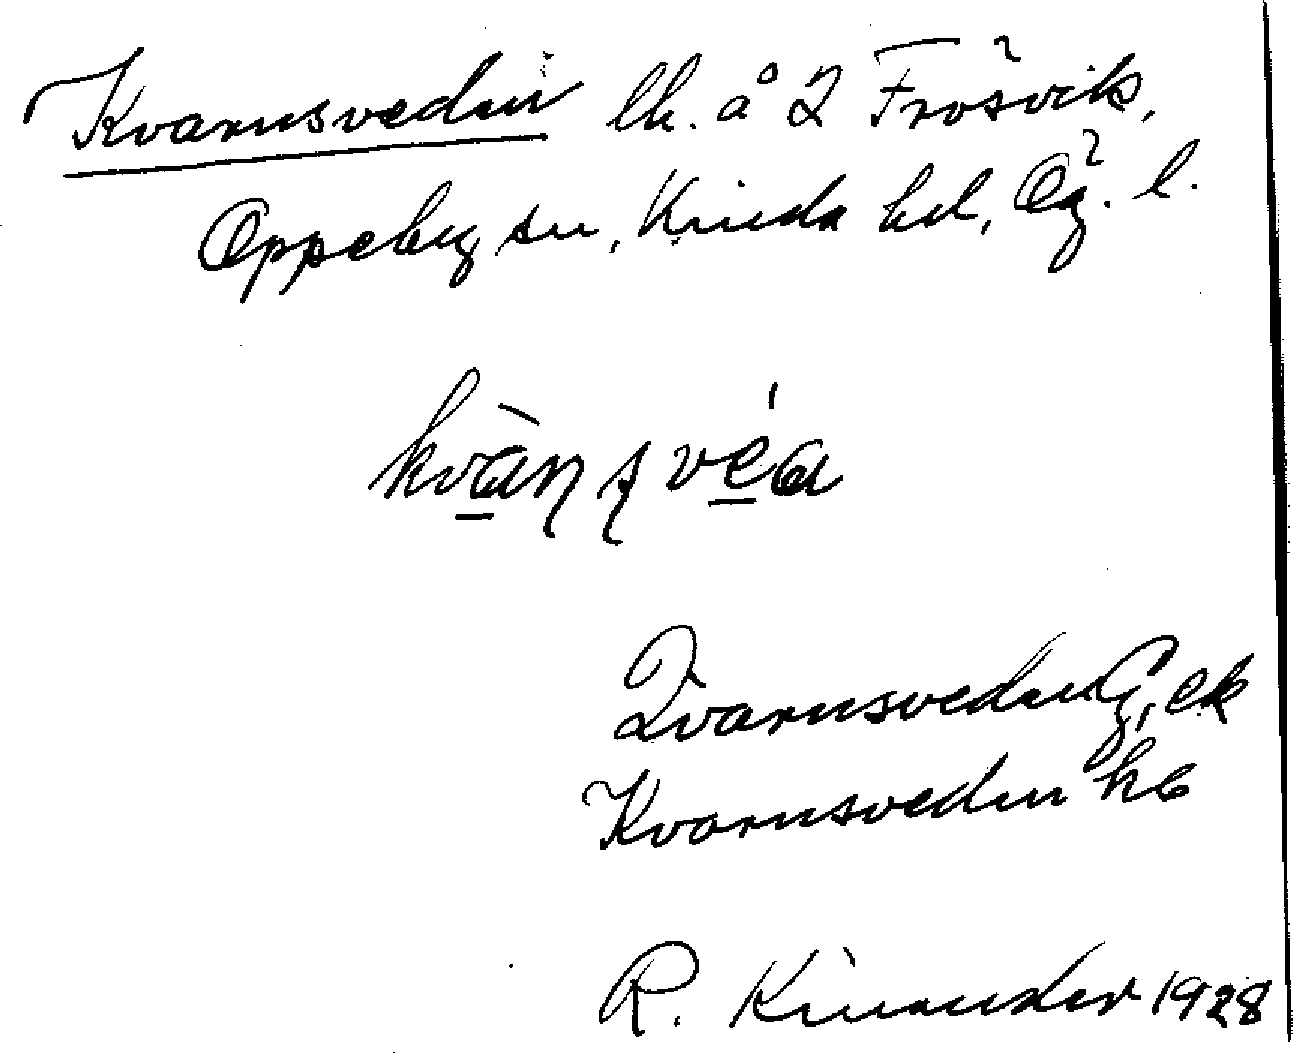 Kvarnsveden lh. å 2 Frösvik,
Oppeby sn, Kinda hd, Ög. l.
kvàn̥ʂ véa
Qvarnsveden G, ek
Kvarnsveden hb
R. Kinander 1928